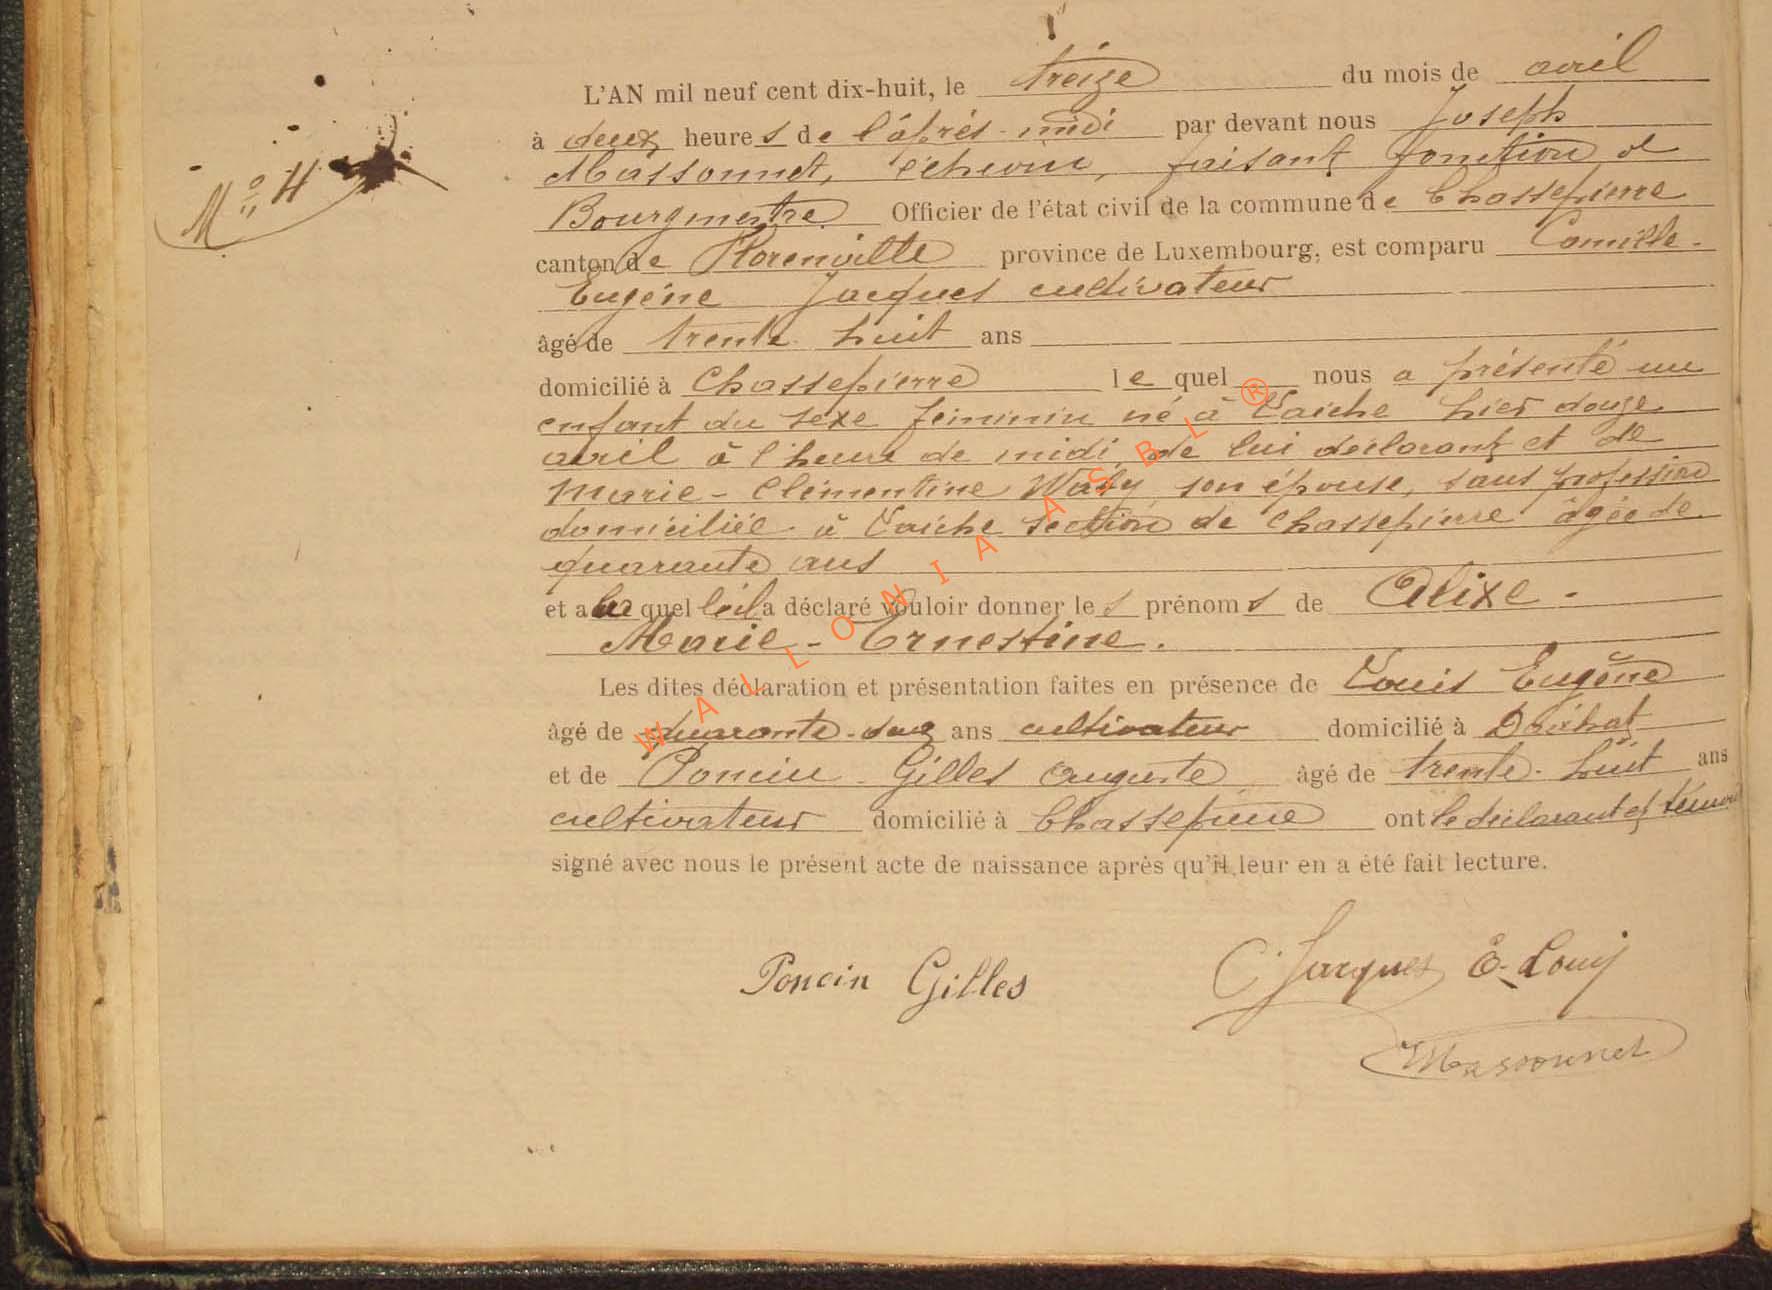 L'AN mil neuf cent dix-huit, le treize du mois de avril
à deux heures de l'après-midi par devant nous Joseph
Massonnet, échevin, faisant fonction de
Nº 4
Bourgmestre Officier de l'état civil de la commune de Chassepierre
canton de Florenville province de Luxembourg, est comparu Camille-
Eugène Jacques cultivateur
âgé de trente huit ans
domicilié à Chassepierre lequel nous a présenté un
enfant du sexe féminin né à Laiche hier douze
avril à l'heure de midi, de lui déclarant et de
Marie-Clémentine son épouse, sans profession
domiciliée à Laiche section de Chassepierre âgée de
quarante ans
et a quel a déclaré vouloir donner les prénoms de Alixe-
Marie-Ernestine.
Les dites déclaration et présentation faites en présence de Louis Eugène
âgé de quarante- ans cultivateur domicilié à
et de Poncin Gilles Auguste âgé de trente-huit ans
cultivateur domicilié à Chassepierre ont le déclarant et témoins
signé avec nous le présent acte de naissance après qu'il leur en a été fait lecture.
Poncin Gilles C. Jacques E. Louis
Massonnet
WALLONIA ASBL ®